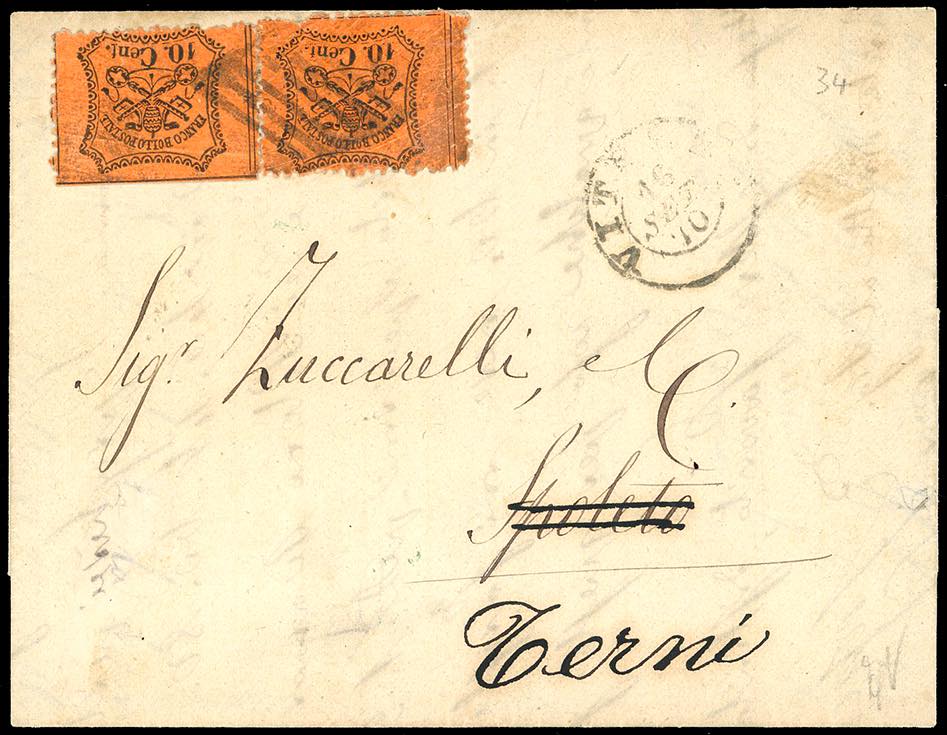 10. Cent. 10. Cent.
FRANCO BOLLO POSTALE FRANCO BOLLO POSTALE
34
16
SET
70
Sigr. Zuccarelli, e C.
Spoleto
Terni